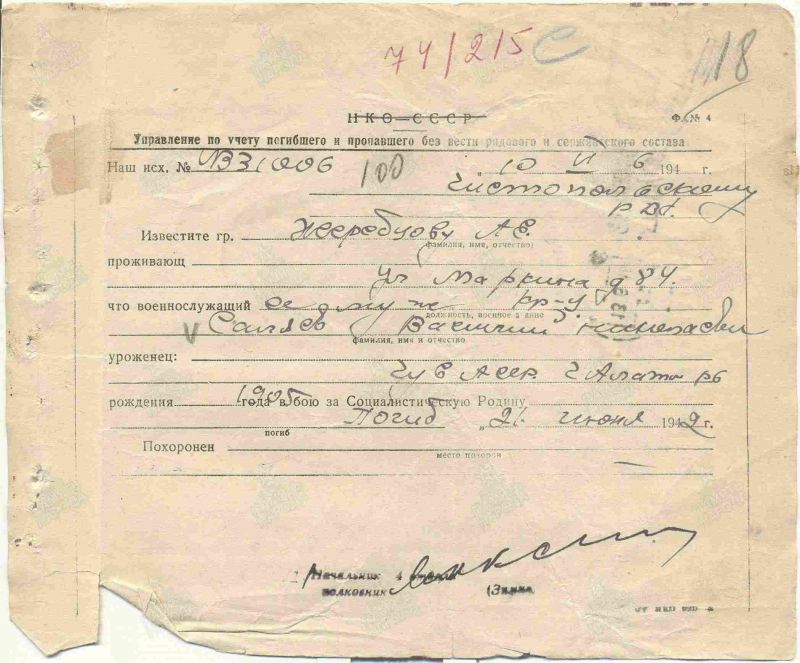 74/215 С
18
НКО—СССР
Ф. № 4
Управление по учету погибшего и пропавшего без вести рядового и сержантского состава
Наш исх. № 100 10 VI 1946 г.
Чистопольскому
РВК.
Известите гр. Жеребцову А.Е.
фамилия, имя, отчество
проживающ
ул Маркина д 84.
что военнослужащий ее муж кр-ц
должность, военное звание
V Саляев Василий Николаевич
фамилия, имя и отчество
уроженец:
Чув АССР. г Алатырь
рождения 1905 года в бою за Социалистическую Родину
Погиб „21. июня 1942 г.
погиб
Похоронен
место похорон
Начальник 4 отдела
полковник (Зимин